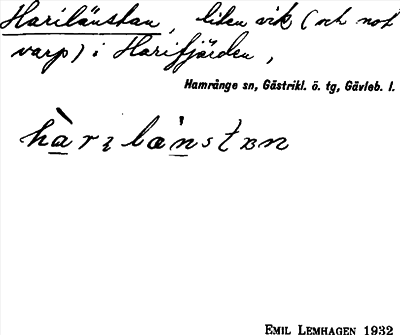 Harilänstan, liten vik (och not
varp) i Harifjärden,
Hamrånge sn, Gästrikl. ö. tg, Gävleb. l.
hàrɩlänstɐn
EMIL LEMHAGEN 1932